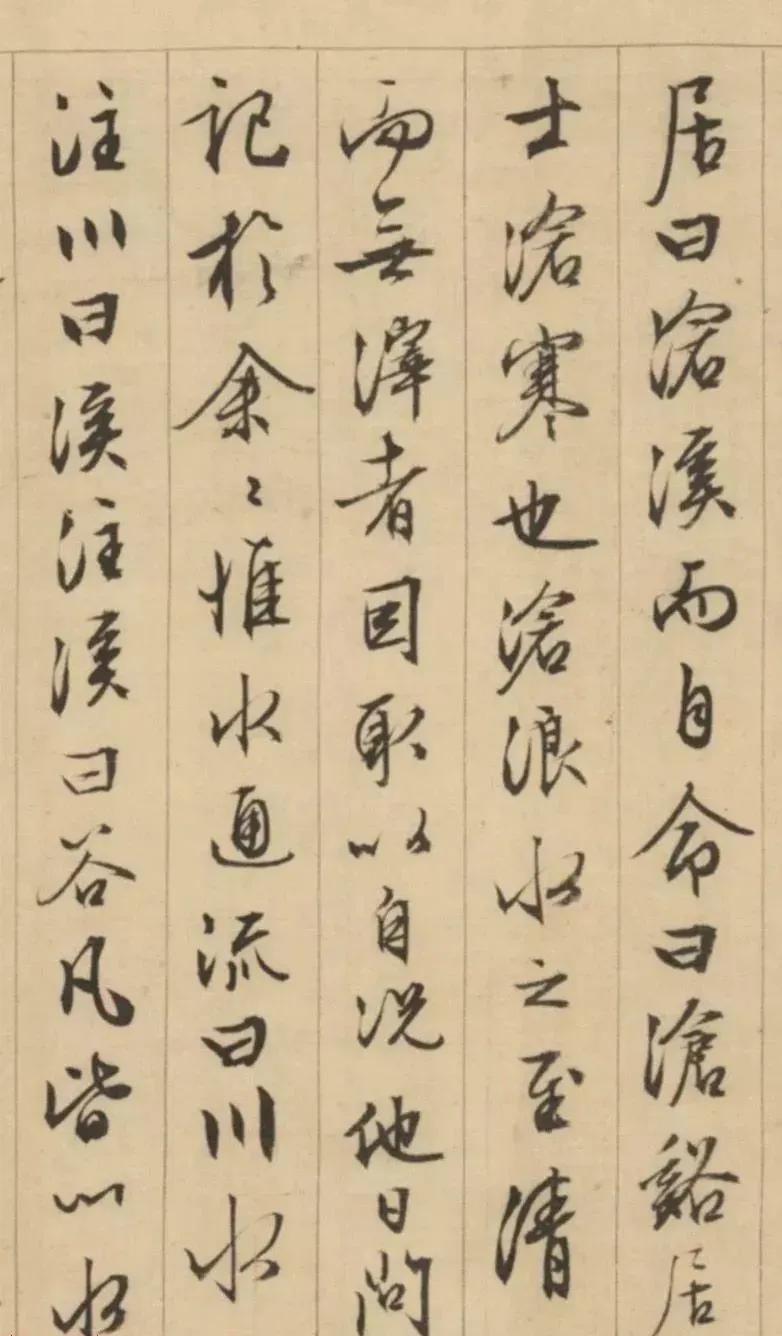 居曰滄溪而自命曰滄谿居
士滄寒也滄浪水之至清
而無滓者因取以自况他日問
記於余〻惟水通流曰川水
注川曰溪注溪曰谷凡皆以水